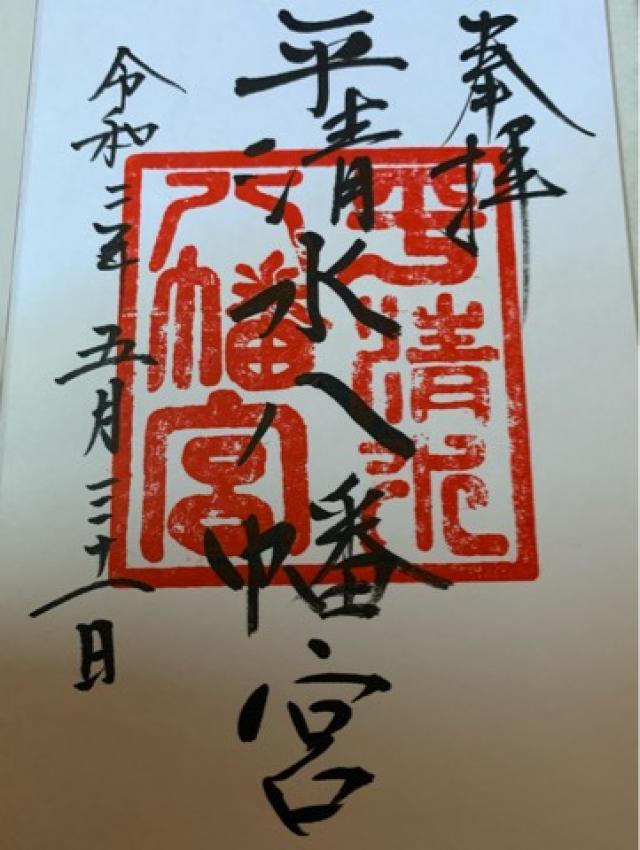 奉拝
平清水八幡宮
令和三年五月三十一日
平清水
八幡宮